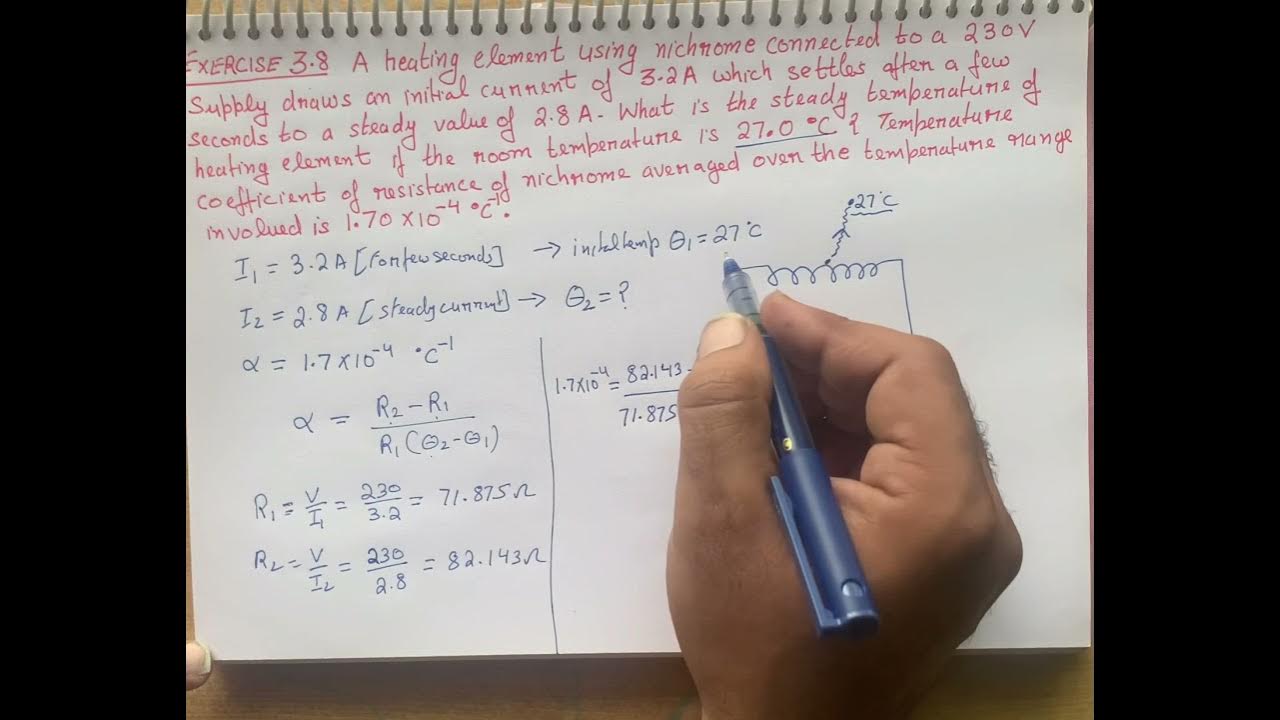 EXERCISE 3.8 A heating element using nichrome connected to a 230V
Supply draws an initial current of 3.2A which settles after a few
seconds to a steady value of 2.8 A. What is the steady temperature of
heating element if the room temperature is 27.0 °C ? Temperature
coefficient of resistance of nichrome averaged over the temperature range
involued is 1.70 × 10⁻⁴ °C⁻¹.
27°C
I₁ = 3.2 A [for few seconds] → inital temp θ₁ = 27°C
I₂ = 2.8 A [steady current] → θ₂ = ?
α = 1.7 × 10⁻⁴ °C⁻¹
α = R₂ − R₁ / R₁ (θ₂ − θ₁)
R₁ = V/I₁ = 230/3.2 = 71.875 Ω
R₂ = V/I₂ = 230/2.8 = 82.143 Ω
1.7 × 10⁻⁴ = 82.143 - / 71.875